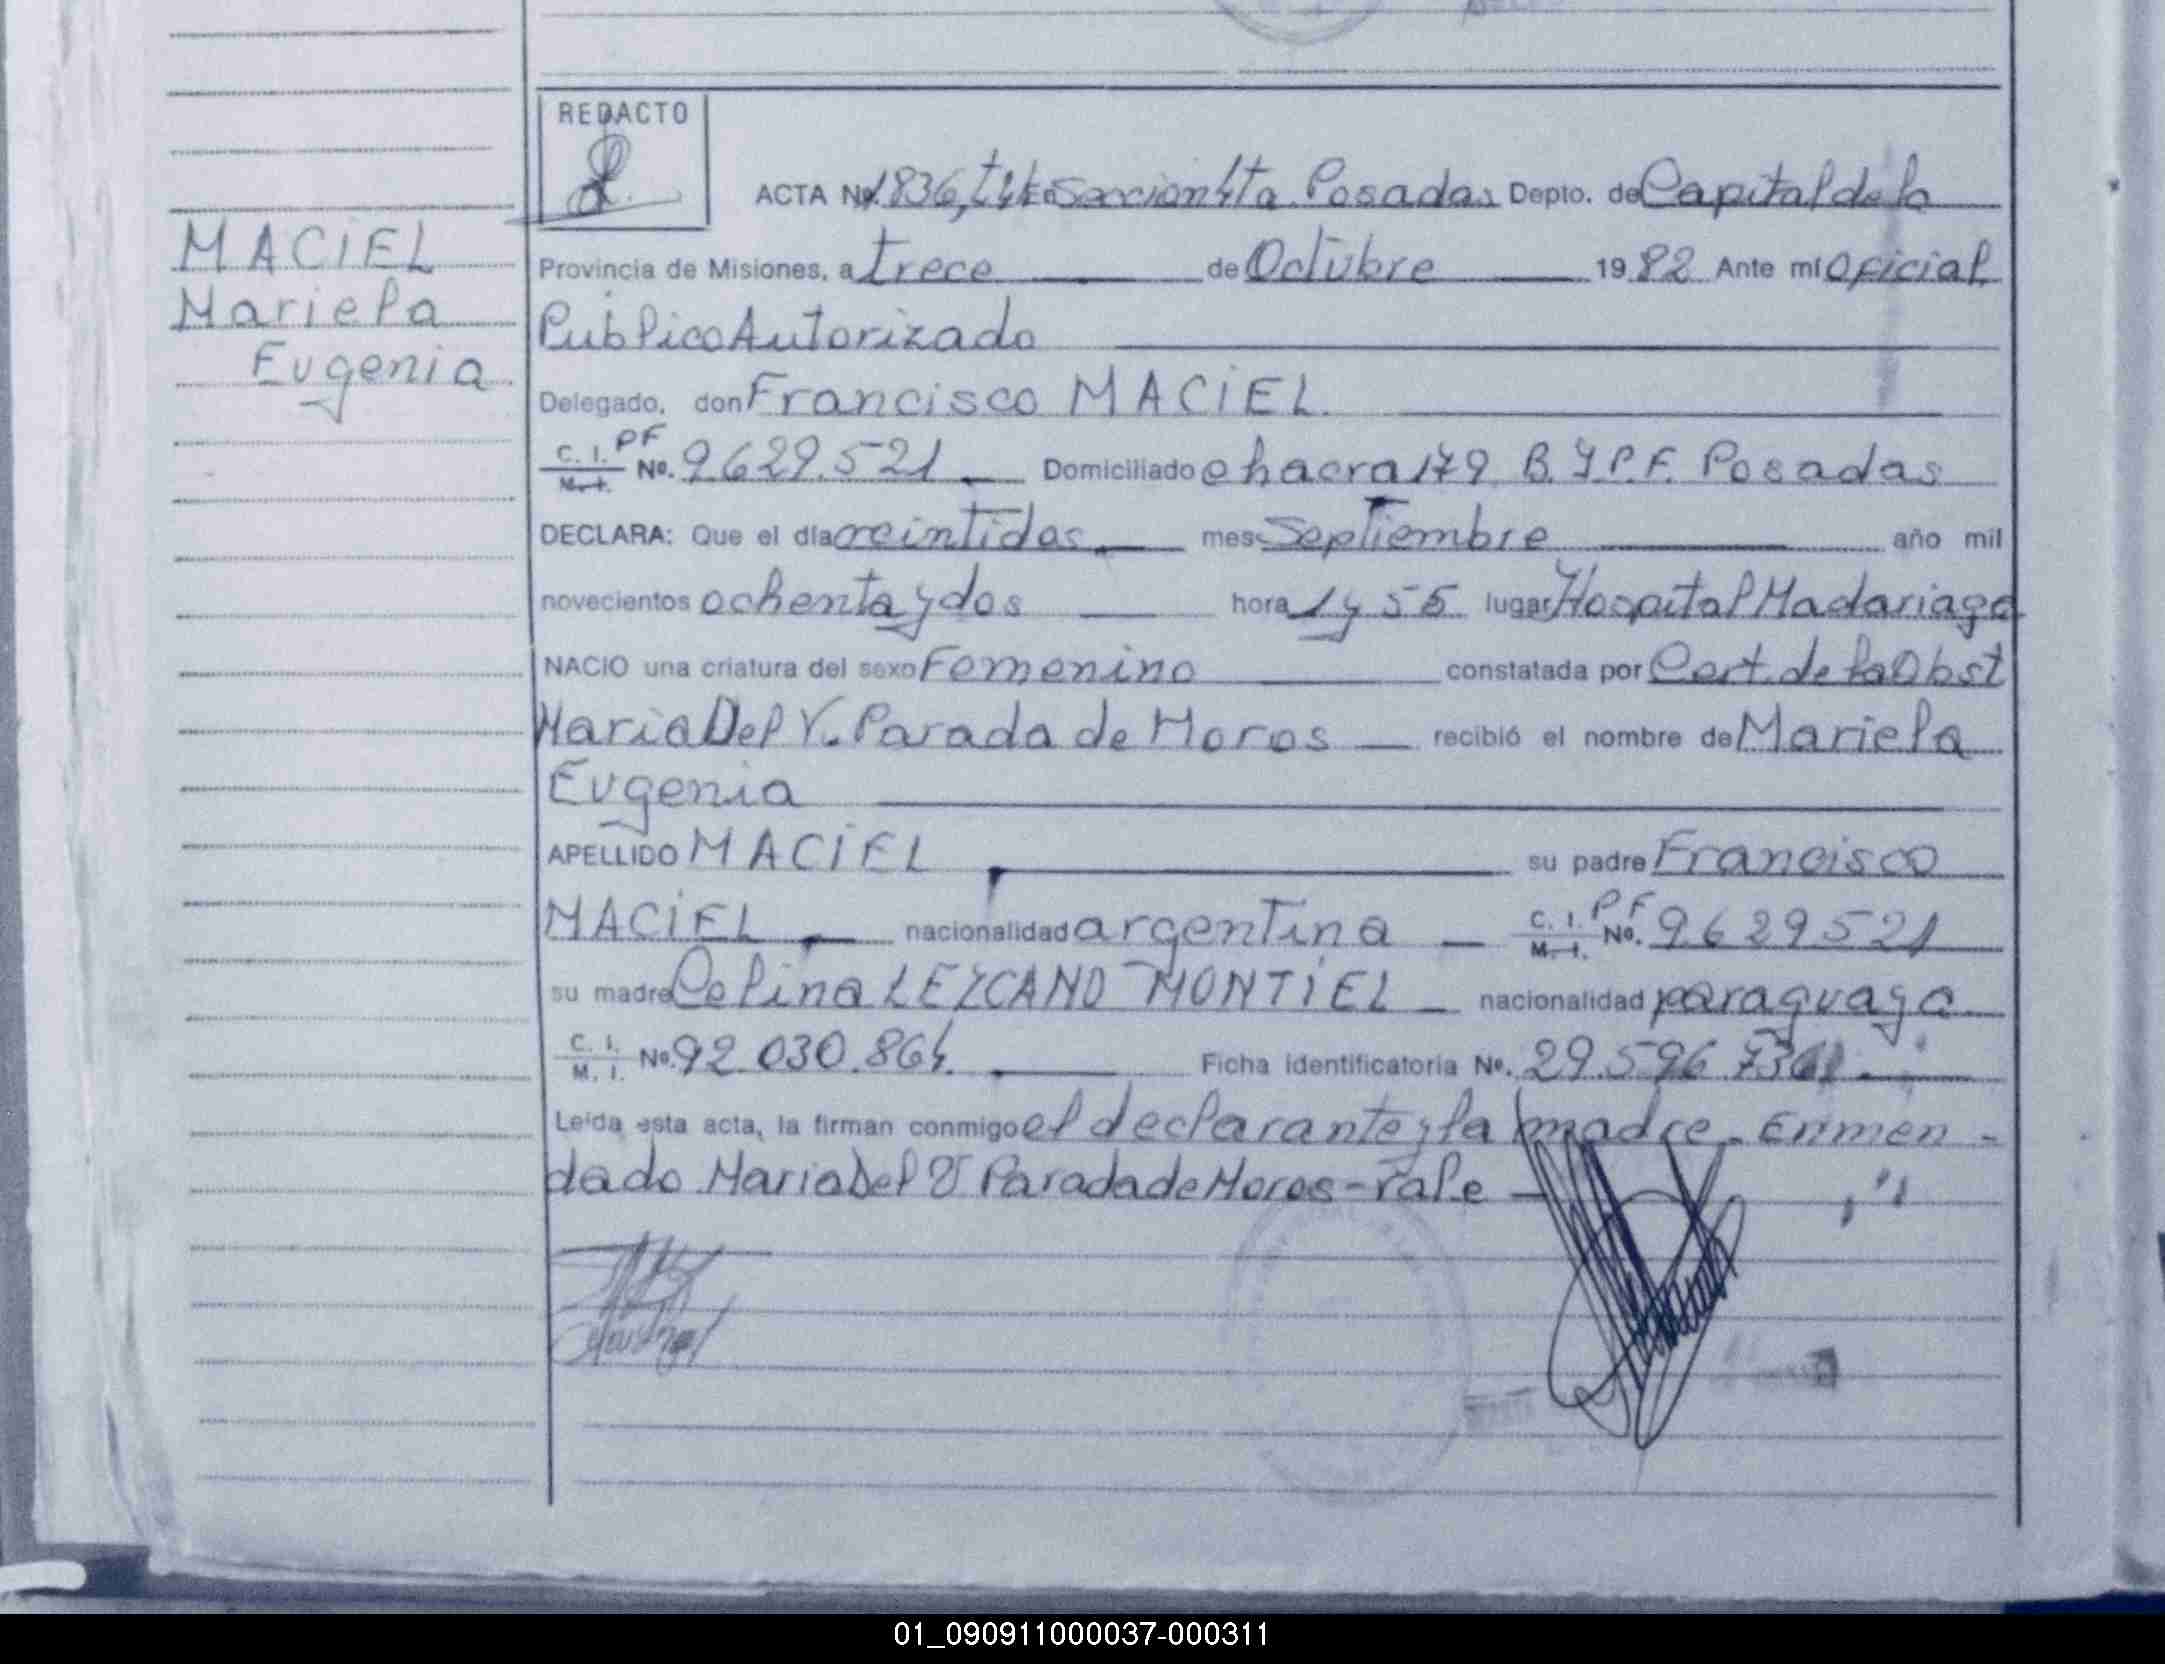 REDACTO
ACTA Nº 1836, t4t En Sección 4ta Posadas Depto. de Capital de la
MACIEL
Mariela
Eugenia
Provincia de Misiones, a trece de Octubre 1982 Ante mí Oficial
Público Autorizado
Delegado, don Francisco MACIEL.
C. I. PF
M. I. Nº. 9.629.521 Domiciliado chacra 179 B. Y.P.F. Posadas
DECLARA: Que el día veintidos mes Septiembre año mil
novecientos ochenta y dos hora 1 y 55 lugar Hospital Madariaga
NACIO una criatura del sexo Femenino constatada por Cert. de la Obst
Maria Del V. Parada de Moros recibió el nombre de Mariela
Eugenia
APELLIDO MACIEL su padre Francisco
MACIEL nacionalidad argentina C. I. PF
M. I. Nº. 9629521
su madre Celina LEZCANO MONTIEL nacionalidad paraguaya
C. I.
M. I. Nº. 92.030.864. Ficha identificatoria Nº. 29.596
Leída esta acta, la firman conmigo el declarante y la madre. Enmen-
dado Maria Del V Parada de Moros - vale
01_090911000037-000311